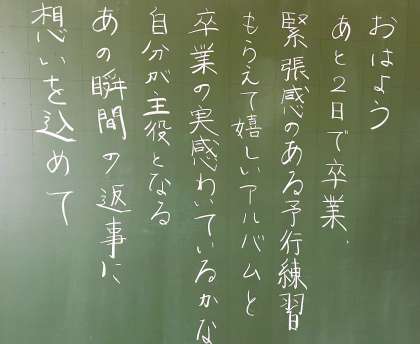 おはよう
あと2日で卒業、
緊張感のある予行練習
もらえて嬉しいアルバムと
卒業の実感わいているかな
自分が主役となる
あの瞬間の返事に
想いを込めて